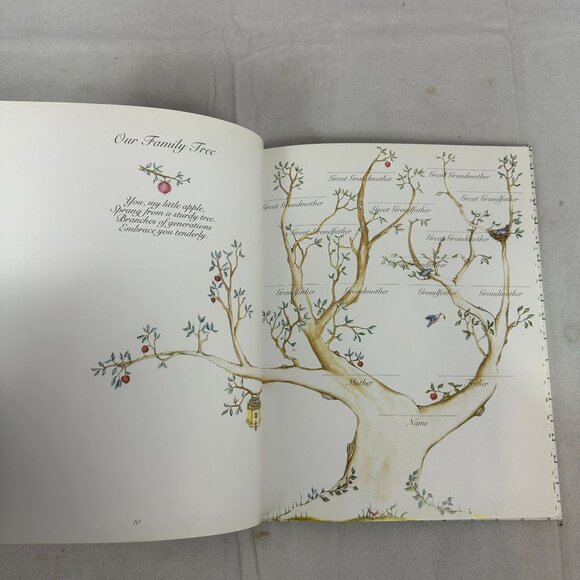 Our Family Tree
You, my little apple,
Sprang from a sturdy tree.
Branches of generations
Embrace you tenderly.
10
Great Grandmother
Great Grandfather
Great Grandmother
Great Grandfather
Great Grandmother
Great Grandfather
Great Grandfather
Great Grandmother
Grandfather
Grandmother
Grandfather
Grandmother
Mother
Father
Name